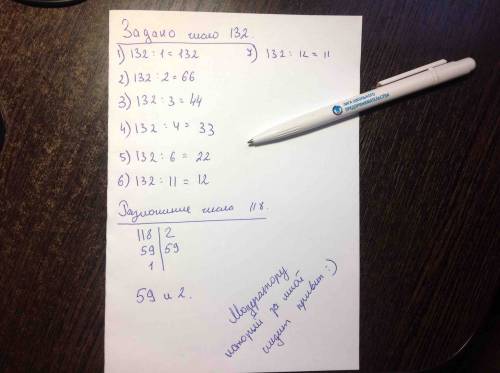 Задано число 132.
1) 132 : 1 = 132
2) 132 : 2 = 66
3) 132 : 3 = 44
4) 132 : 4 = 33
5) 132 : 6 = 22
6) 132 : 11 = 12
7) 132 : 12 = 11
Разложение число 118.
118 | 2
59 | 59
1 |
59 и 2.
Модератору
который за мной
следит привет :)
ПРЕДПРИНИМАТЕЛЬСТВА